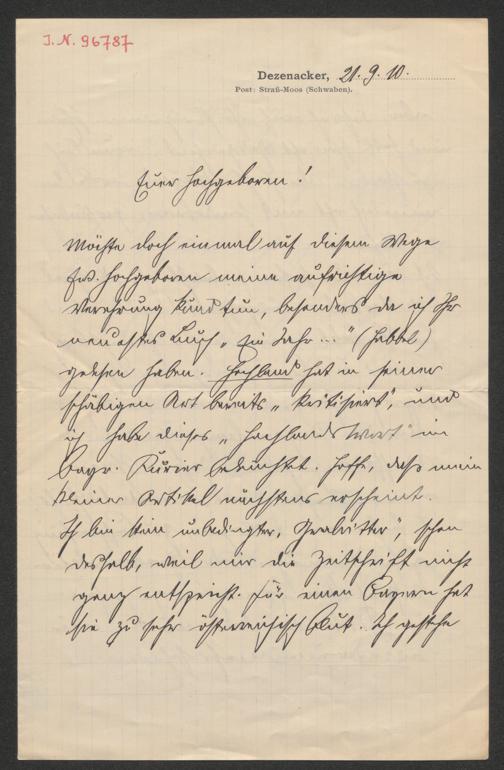 I. N. 96787
Dezenacker, 21. 9. 10.
Post: Straß-Moos (Schwaben).
Euer Hochgeboren!
Möchte doch einmal auf diesem Wege
Ew. Hochgeboren meine aufrichtige
Verehrung kund tun, besonders da ich Ihr
neuestes Buch „Ein Jahr ..." (Habbel)
gelesen haben. Hochland hat in seiner
schäbigen Art bereits „kritisiert", und
ich habe dieses „Hochlandswort" im
bayr. Kurier beleuchtet. Hoffe, daß mein
kleiner Artikel nächstens erscheint.
Ich bin kein unbedingter „Gralritter", schon
deshalb, weil mir die Zeitschrift nicht
ganz entspricht. Für einen Bayern hat
sie zu sehr österreichisch Blut. Ich gestehe